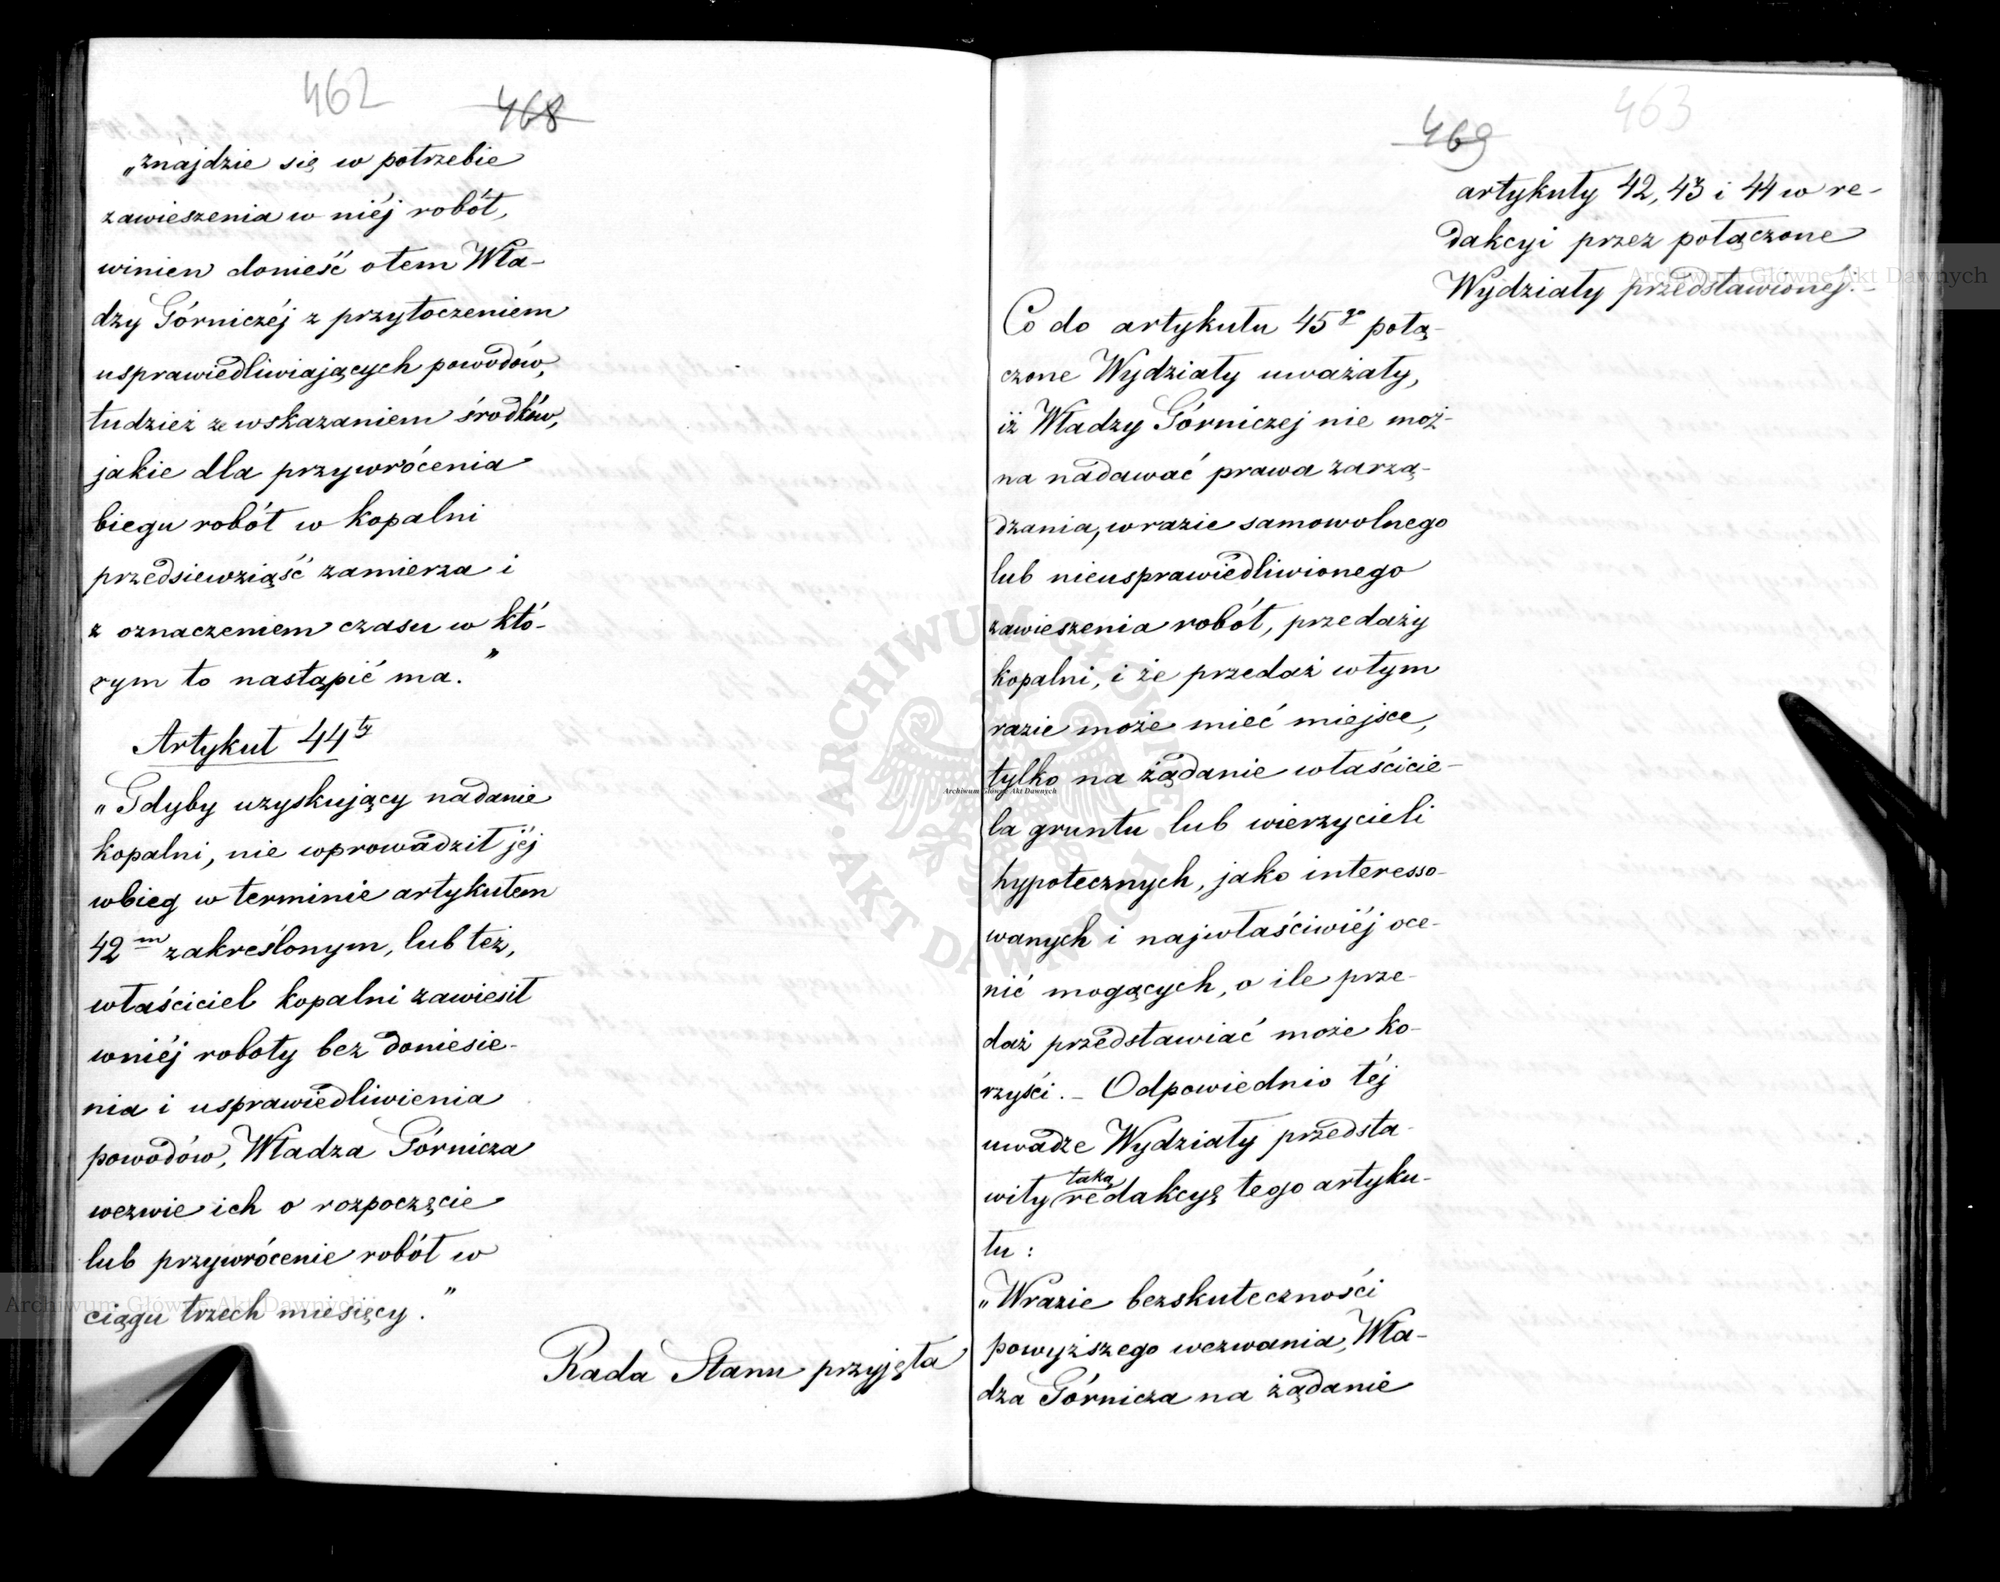 462 468
„znajdzie się w potrzebie
zawieszenia w niéj robót,
winien donieść o tem Wła-
dzy Górniczéj z przytoczeniem
usprawiedliwiających powodów,
tudzież ze wskazaniem środków,
jakie dla przywrócenia
biegu robót w kopalni
przedsiewziąść zamierza i
z oznaczeniem czasu w któ-
rym to nastąpić ma.”
Artykuł 44ty
„Gdyby uzyskujący nadanie
kopalni, nie wprowadził jéj
w bieg w terminie artykułem
42m zakreślonym, lub też,
właściciel kopalni zawiesił
w niéj roboty bez doniesie-
nia i usprawiedliwienia
powodów, Władza Górnicza
wezwie ich o rozpoczęcie
lub przywrócenie robót w
ciągu trzech miesięcy.”
Rada Stanu przyjęła
469 463
artykuły 42, 43 i 44 w re-
dakcyi przez połączone
Wydziały przedstawionéj.-
Co do artykułu 45go połą-
czone Wydziały uważały,
iż Władzy Górniczej nie moż-
na nadawać prawa zarzą-
dzania, w razie samowolnego
lub nieusprawiedliwionego
zawieszenia robót, przedaży
kopalni, i że przedaż w tym
razie może mieć miejsce,
tylko na żądanie właścicie-
la gruntu lub wierzycieli
hypotecznych, jako interesso-
wanych i najwłaściwiéj oce-
nić mogących, o ile prze-
daż przedstawiać może ko-
rzyści. - Odpowiednio téj
uwadze Wydziały przedsta-
wiły taką redakcyę tego artyku-
łu:
„W razie bezskuteczności
powyższego wezwania, Wła-
dza Górnicza na żądanie
Archiwum Główne Akt Dawnych
Archiwum Główne Akt Dawnych
Archiwum Główne Akt Dawnych
ARCHIWUM GŁÓWNE AKT DAWNYCH